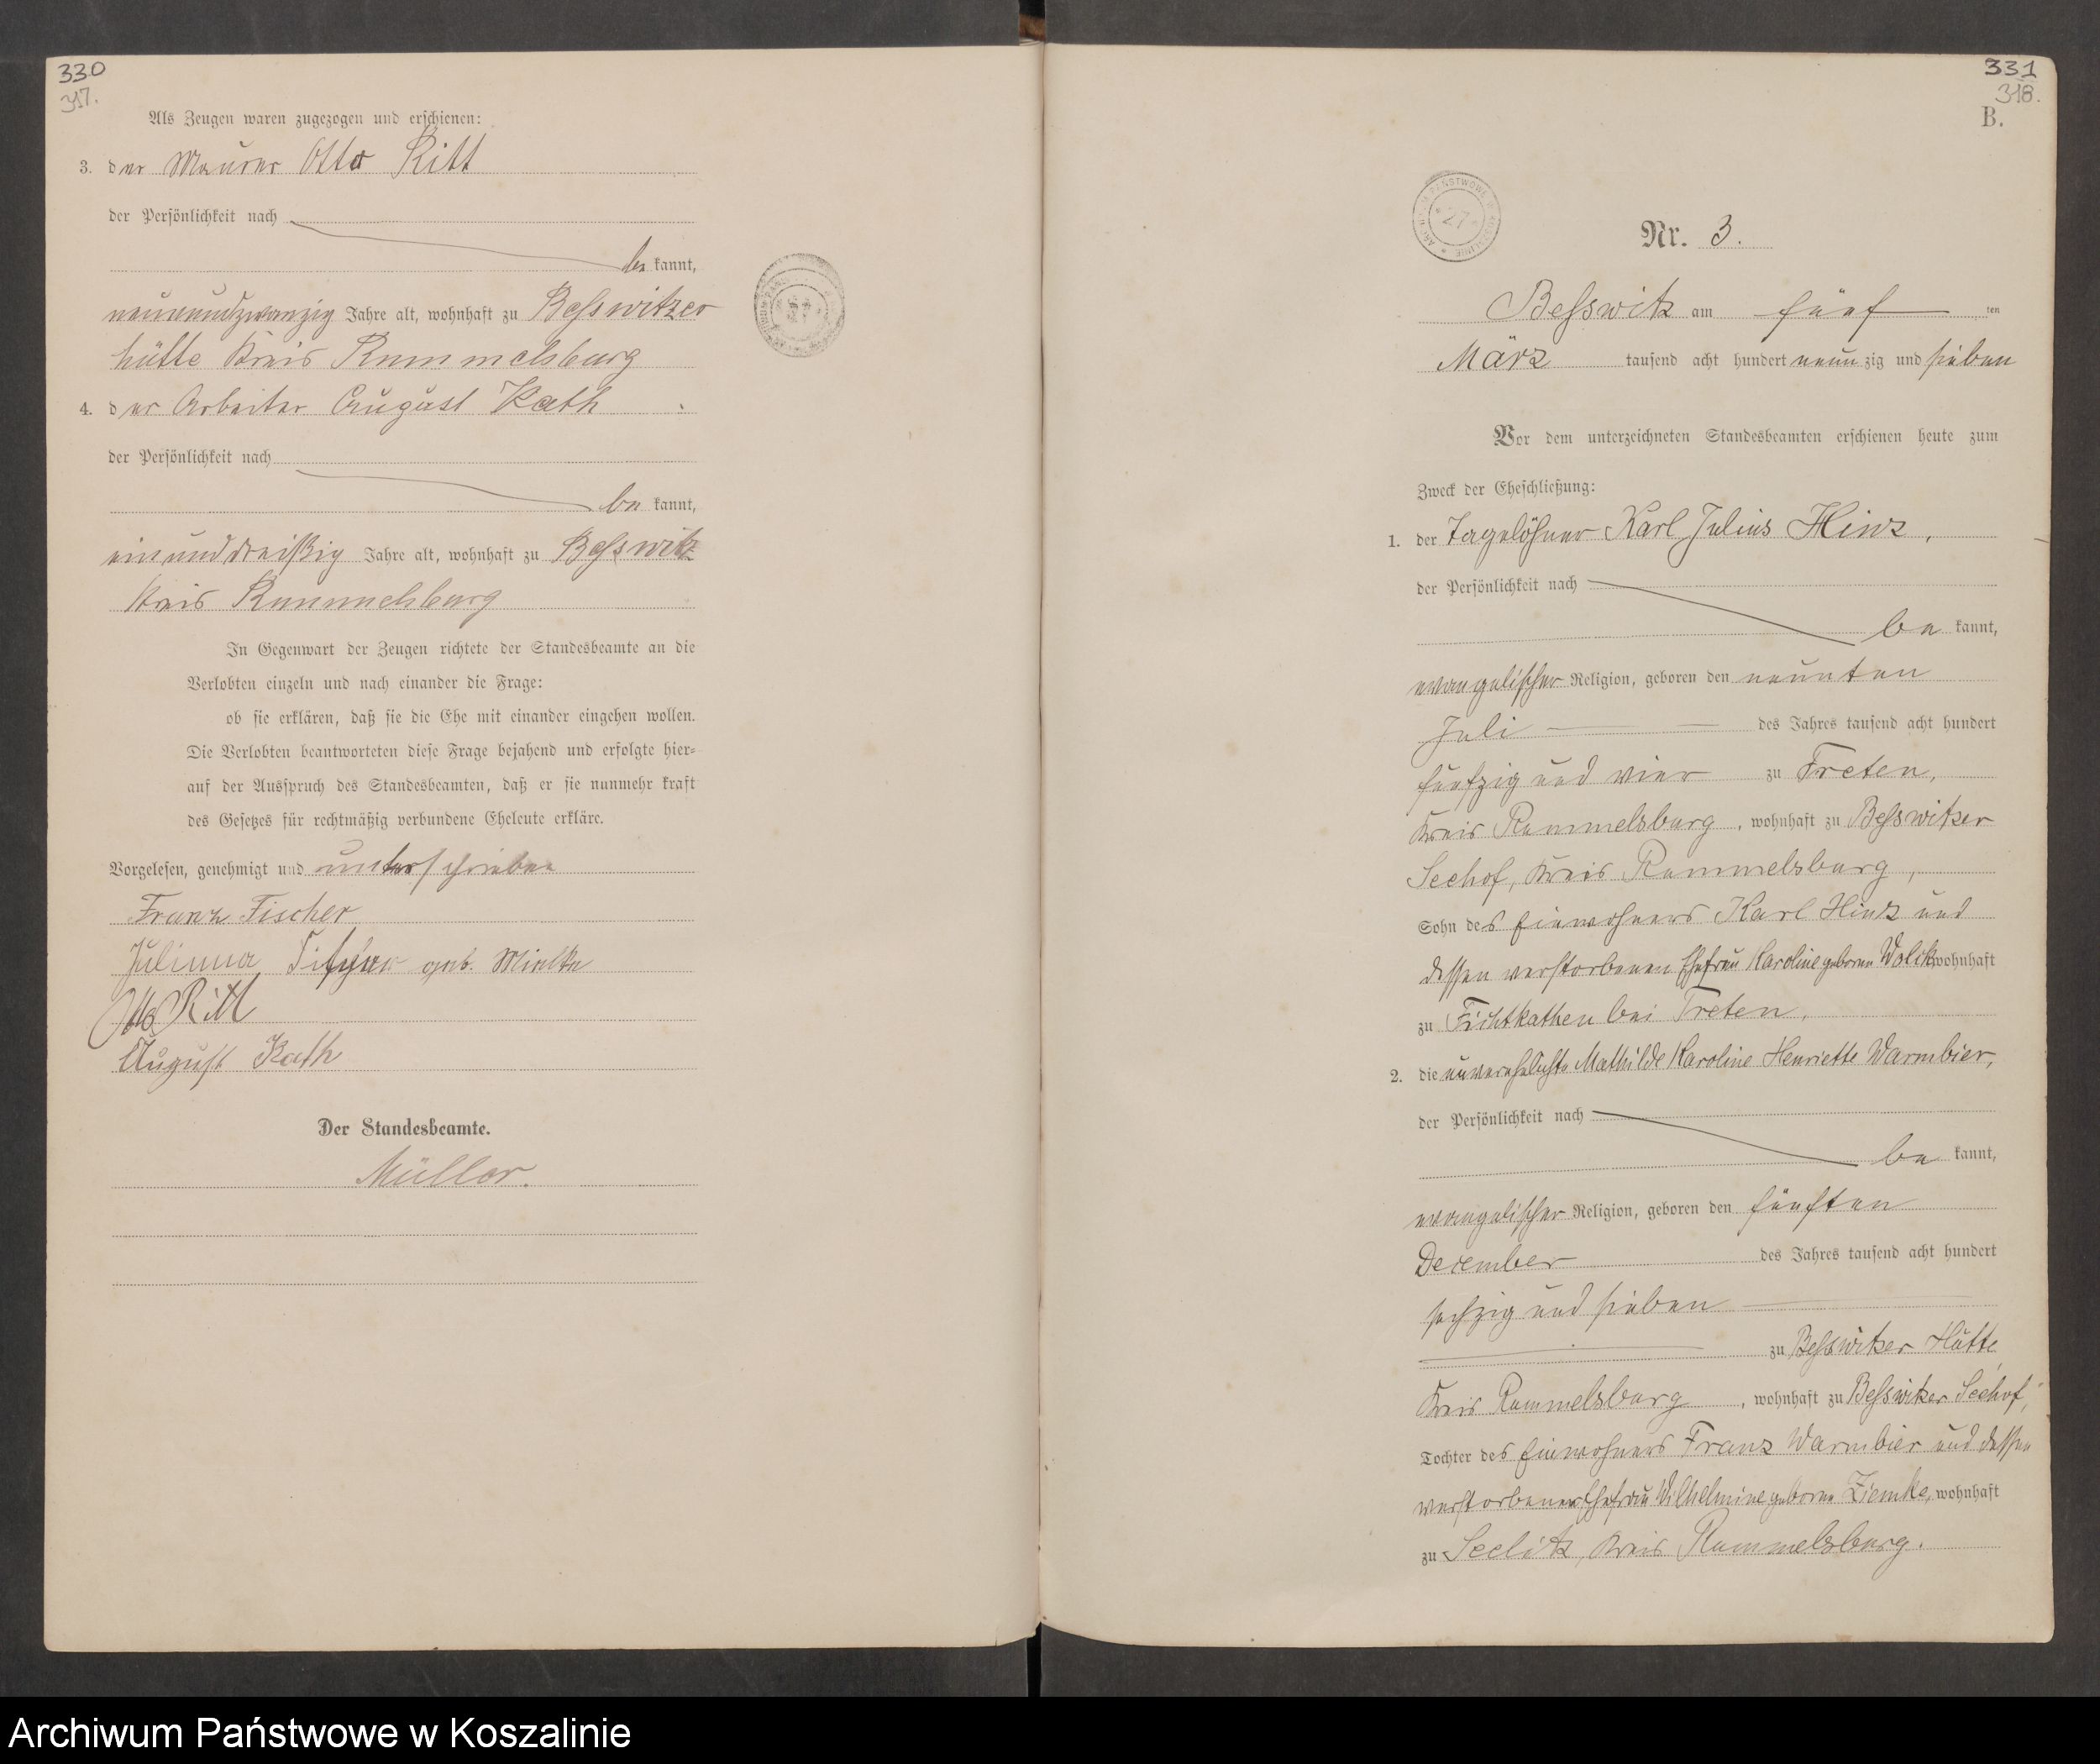 330
317.
Als Zeugen waren zugezogen und erschienen:
3. der Maurer Otto Ritt
der Persönlichkeit nach
be kannt,
neunundzwanzig Jahre alt, wohnhaft zu Besswitzer
hütte Kreis Rummelsburg
4. der Arbeiter August Kath
der Persönlichkeit nach
be kannt,
einunddreißig Jahre alt, wohnhaft zu Besswitz
Kreis Rummelsburg
In Gegenwart der Zeugen richtete der Standesbeamte an die
Verlobten einzeln und nach einander die Frage:
ob sie erklären, daß sie die Ehe mit einander eingehen wollen.
Die Verlobten beantworteten diese Frage bejahend und erfolgte hier-
auf der Ausspruch des Standesbeamten, daß er sie nunmehr kraft
des Gesetzes für rechtmäßig verbundene Eheleute erkläre.
Vorgelesen, genehmigt und unterschrieben
Franz Fischer
Julianna Fischer geb. Mielke
Otto Ritt
August Kath
Der Standesbeamte.
Müller.
331
318.
B.
27
Nr. 3.
Besswitz am fünf ten
März tausend acht hundert neun zig und sieben
Vor dem unterzeichneten Standesbeamten erschienen heute zum
Zweck der Eheschließung:
1. der Tagelöhner Karl Julius Hinz,
der Persönlichkeit nach
be kannt,
evangelischer Religion, geboren den neunten
Juli des Jahres tausend acht hundert
fünfzig und vier zu Treten,
Kreis Rummelsburg, wohnhaft zu Besswitzer
Seehof, Kreis Rummelsburg,
Sohn des Einwohners Karl Hinz und
dessen verstorbenen Ehefrau Karoline geborene Wolik wohnhaft
zu Fichtkathen bei Treten.
2. die unverehelichte Mathilde Karoline Henriette Warmbier,
der Persönlichkeit nach
be kannt,
evangelischer Religion, geboren den fünften
Dezember des Jahres tausend acht hundert
sechzig und sieben
zu Besswitzer Hütte
Kreis Rummelsburg, wohnhaft zu Besswitzer Seehof,
Tochter des Einwohners Franz Warmbier und dessen
verstorbenen Ehefrau Wilhelmine geborene Ziemke, wohnhaft
zu Seelitz, Kreis Rummelsburg.
Archiwum Państwowe w Koszalinie